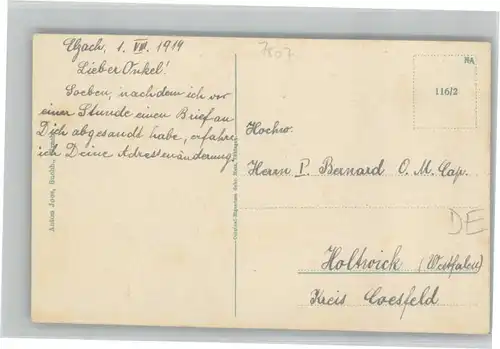 Elzach, 1. VII. 1914
Lieber Onkel!
Soeben, nachdem ich vor
einer Stunde einen Brief an
Dich abgesandt habe, erfahre
ich Deine Adressenänderung.
7807
NA
116/2
Hochw.
Herrn P. Bernard O. M. Cap.
DE
Holtwick (Westfalen)
Kreis Coesfeld
Anton Joos, Buchh.,